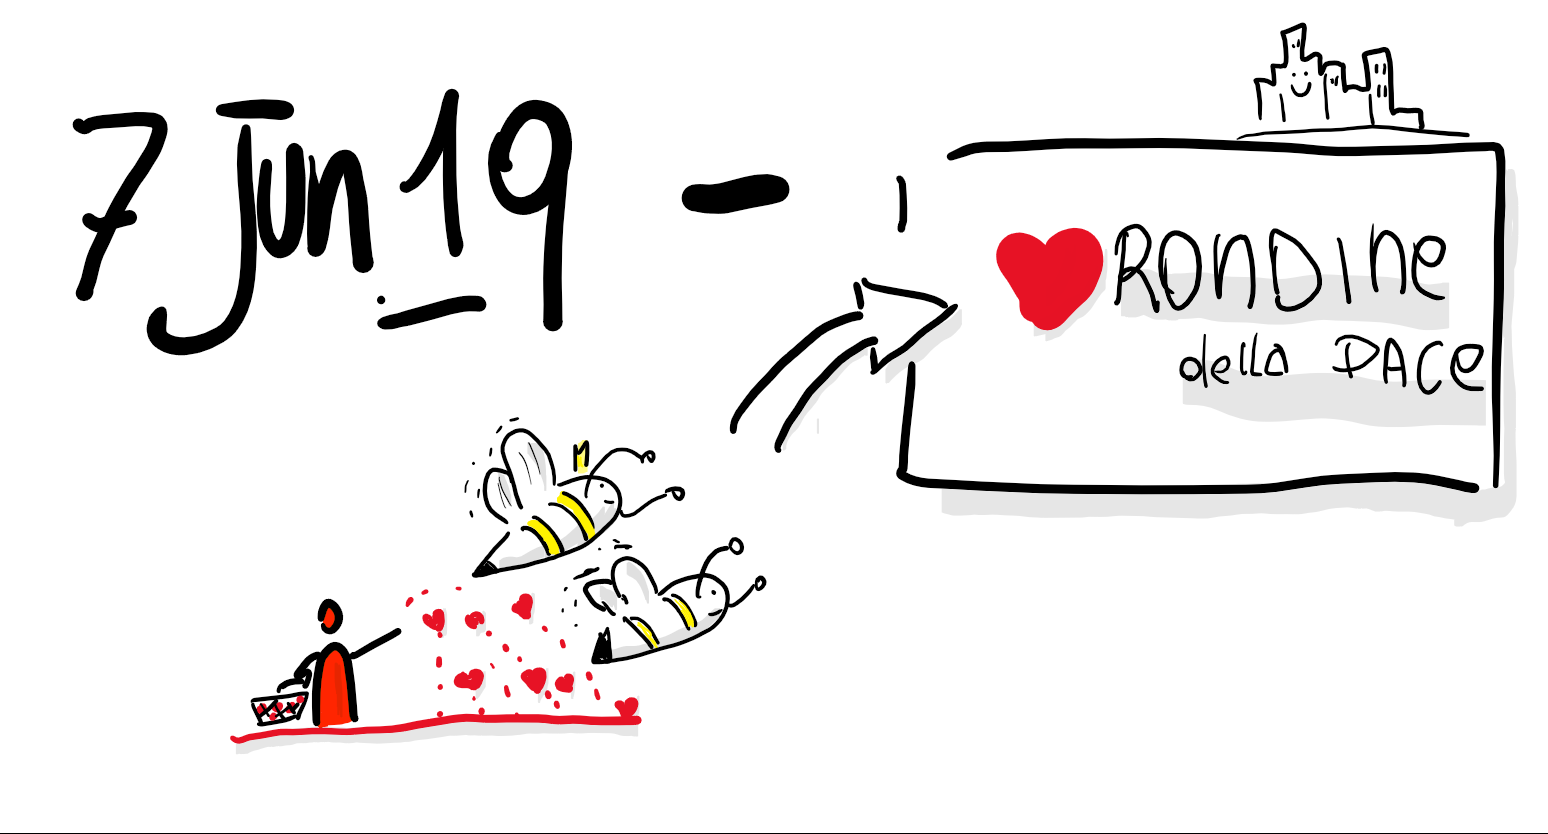 7 Jun 19 -
RONDINE
della PACE
M